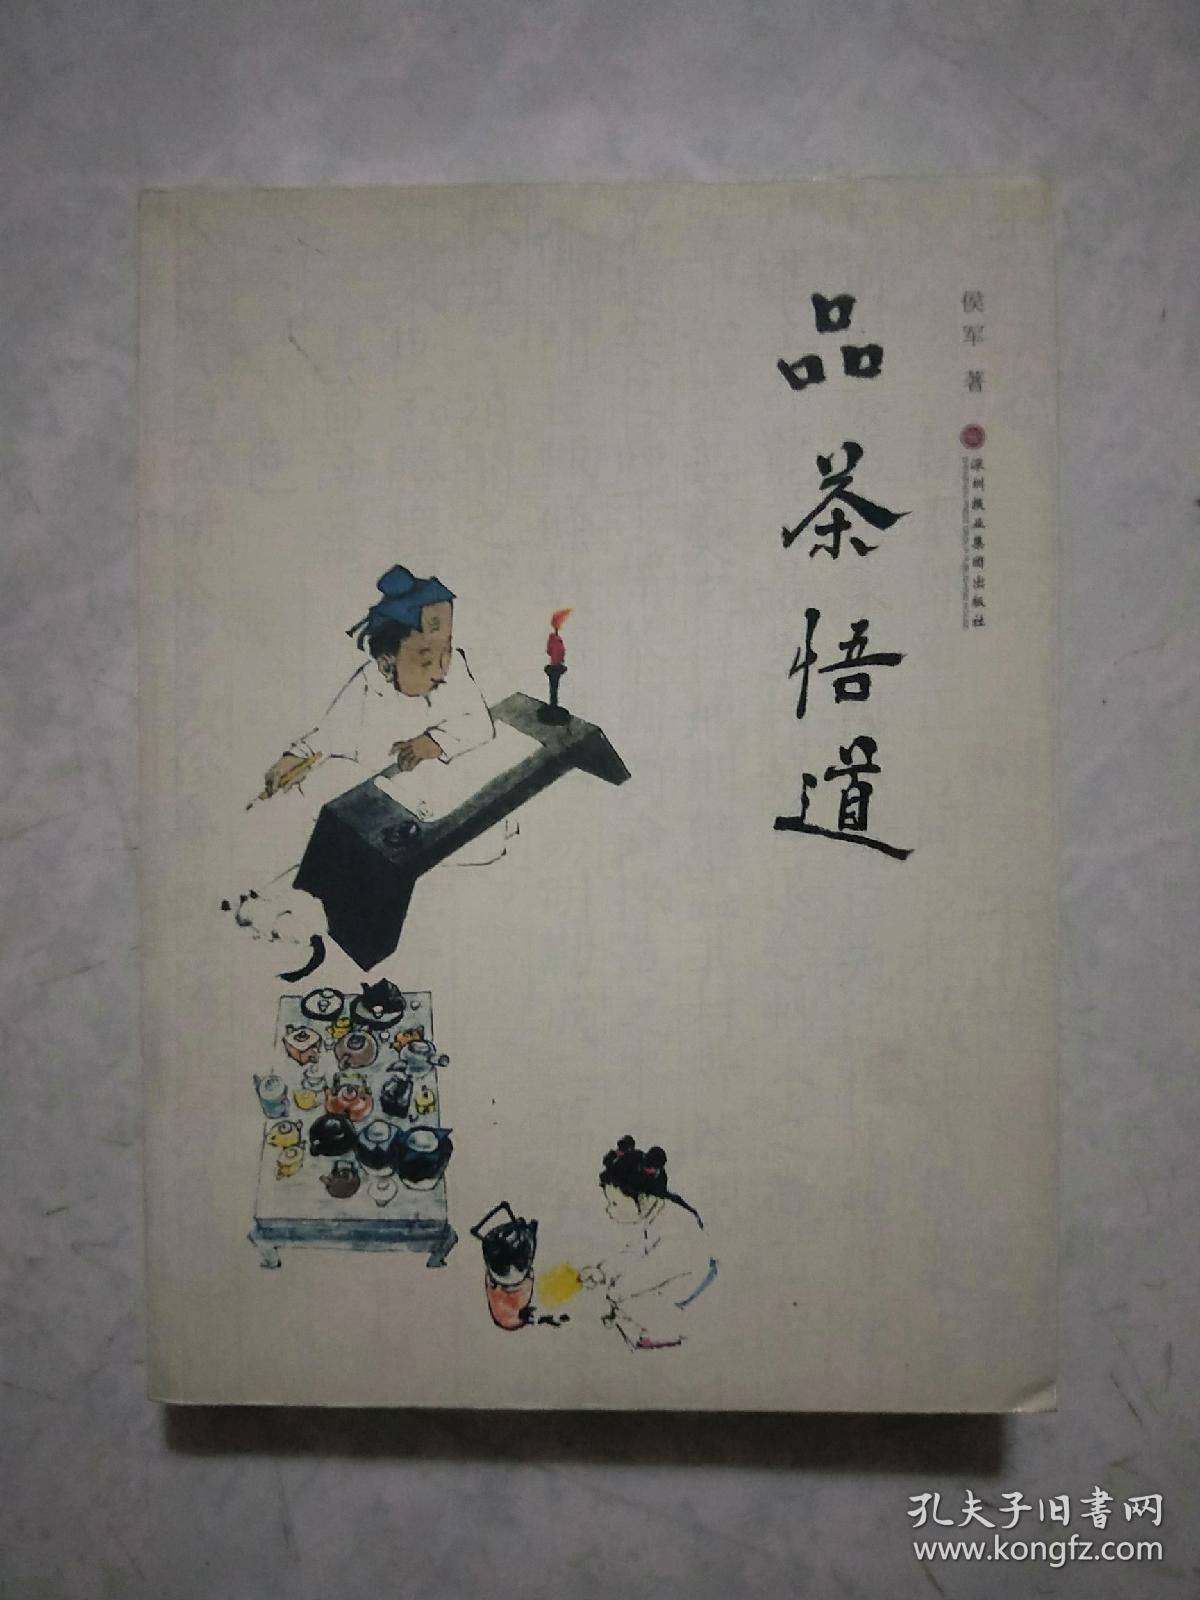 侯军 著
深圳报业集团出版社
品茶悟道
孔夫子旧书网
www.kongfz.com